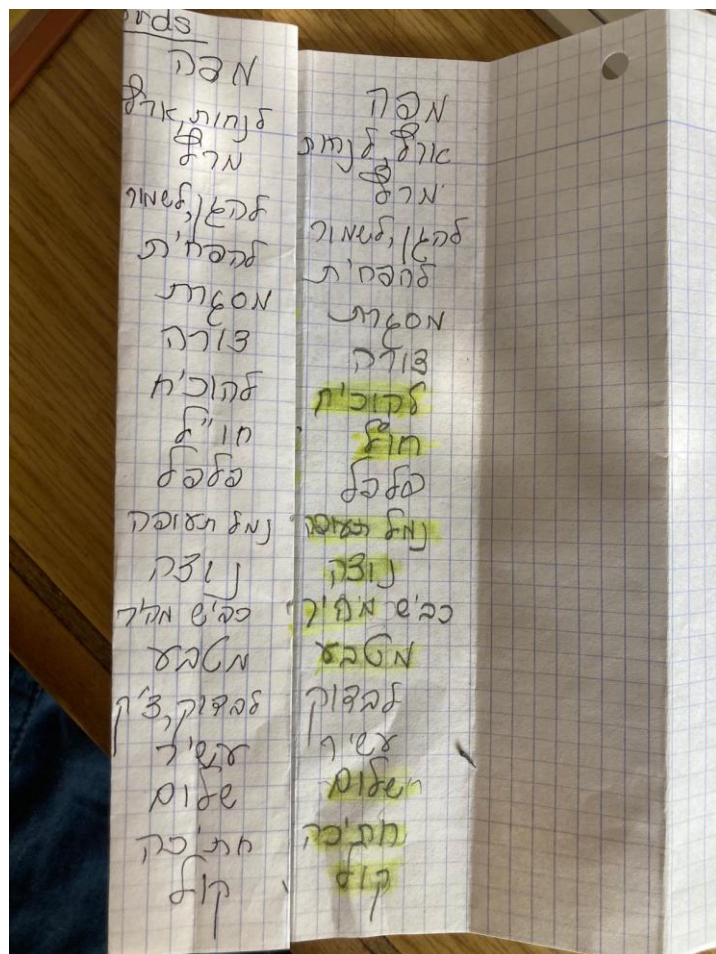 ords
מפה
לנחות, ארץ
מרץ
להגן, לשמור
להפחית
מסגרת
צורה
להוכיח
חו"ל
פלפל
נמל תעופה
נוצה
כביש מהיר
מטבע
לבדוק, צ'ק
עשיר
שלום
חתיכה
קול
מפה
ארץ, לנחות
מרץ
להגן, לשמור
להפחית
מסגרת
צורה
להוכיח
חו"ל
פלפל
נמל תעופה
נוצה
כביש מהיר
מטבע
לבדוק
עשיר
שלום
חתיכה
קול